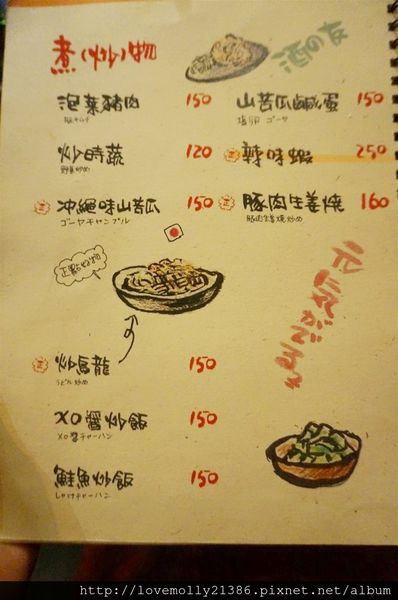 煮(炒)物
酒の友
泡菜豬肉 150
山苦瓜鹹蛋 150
塩卵 ゴーヤ
炒時蔬 120
野菜炒め
辣味蝦 250
沖繩味山苦瓜 150
ゴーヤチャンプル
豚肉生姜燒 160
豚肉生姜焼炒め
元気がでる
炒烏龍 150
うどん炒め
XO醬炒飯 150
XO醬チャーハン
鮭魚炒飯 150
しゃけチャーハン
http://lovemolly21386.pixnet.net/album